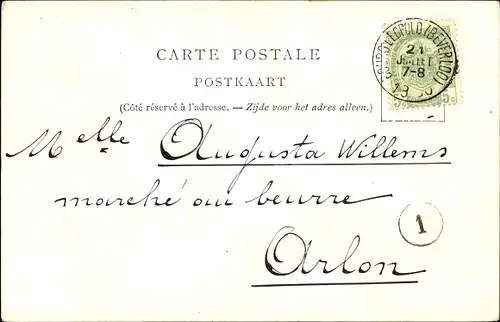 CARTE POSTALE
POSTKAART
(Côté réservé à l'adresse. — Zijde voor het adres alleen.)
BOURG-LÉOPOLD (BEVERLOO)
21
JUILLET
7-8
5c
Melle Augusta Willems
marché au beurre
1
Arlon